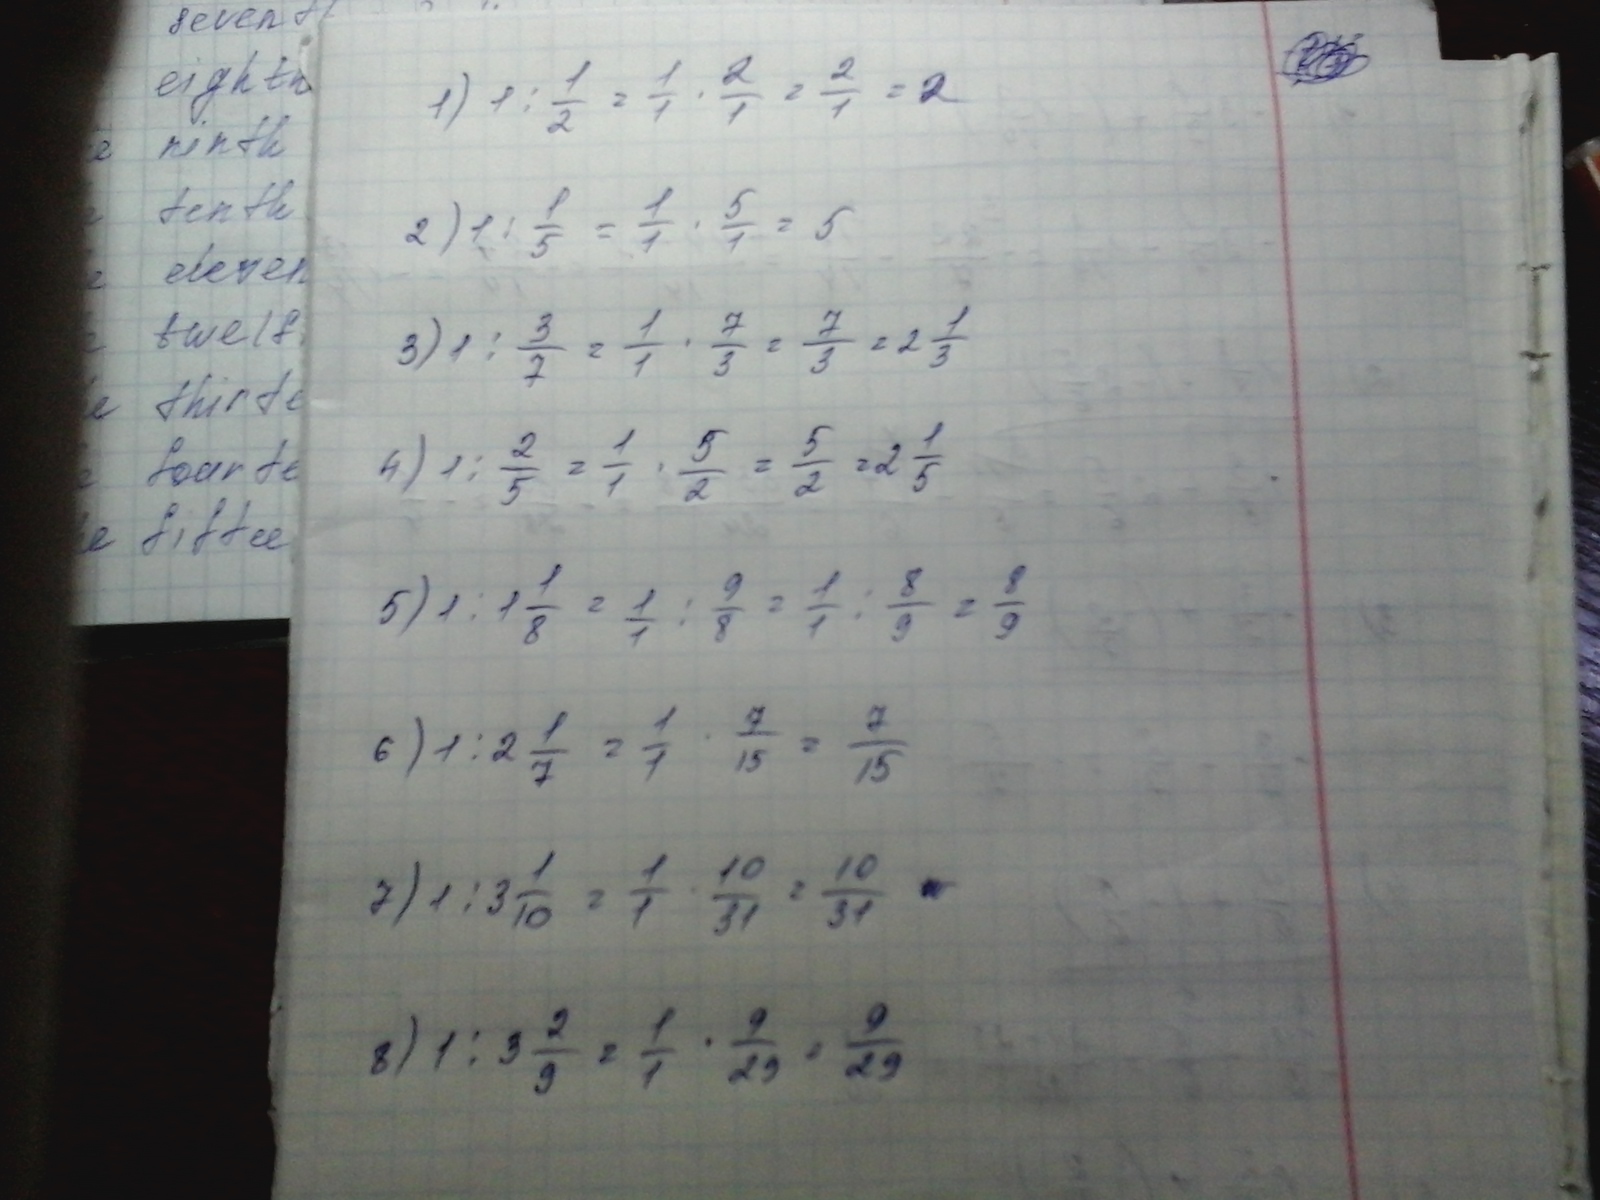 seventh
eighth
ninth
tenth
eleven
twelf
thirte
fourte
fiftee
1) 1 : 1/2 = 1/1 · 2/1 = 2/1 = 2
2) 1 : 1/5 = 1/1 · 5/1 = 5
3) 1 : 3/7 = 1/1 · 7/3 = 7/3 = 2 1/3
4) 1 : 2/5 = 1/1 · 5/2 = 5/2 = 2 1/5
5) 1 : 1 1/8 = 1/1 : 9/8 = 1/1 : 8/9 = 8/9
6) 1 : 2 1/7 = 1/1 · 7/15 = 7/15
7) 1 : 3 1/10 = 1/1 · 10/31 = 10/31
8) 1 : 3 2/9 = 1/1 · 9/29 = 9/29